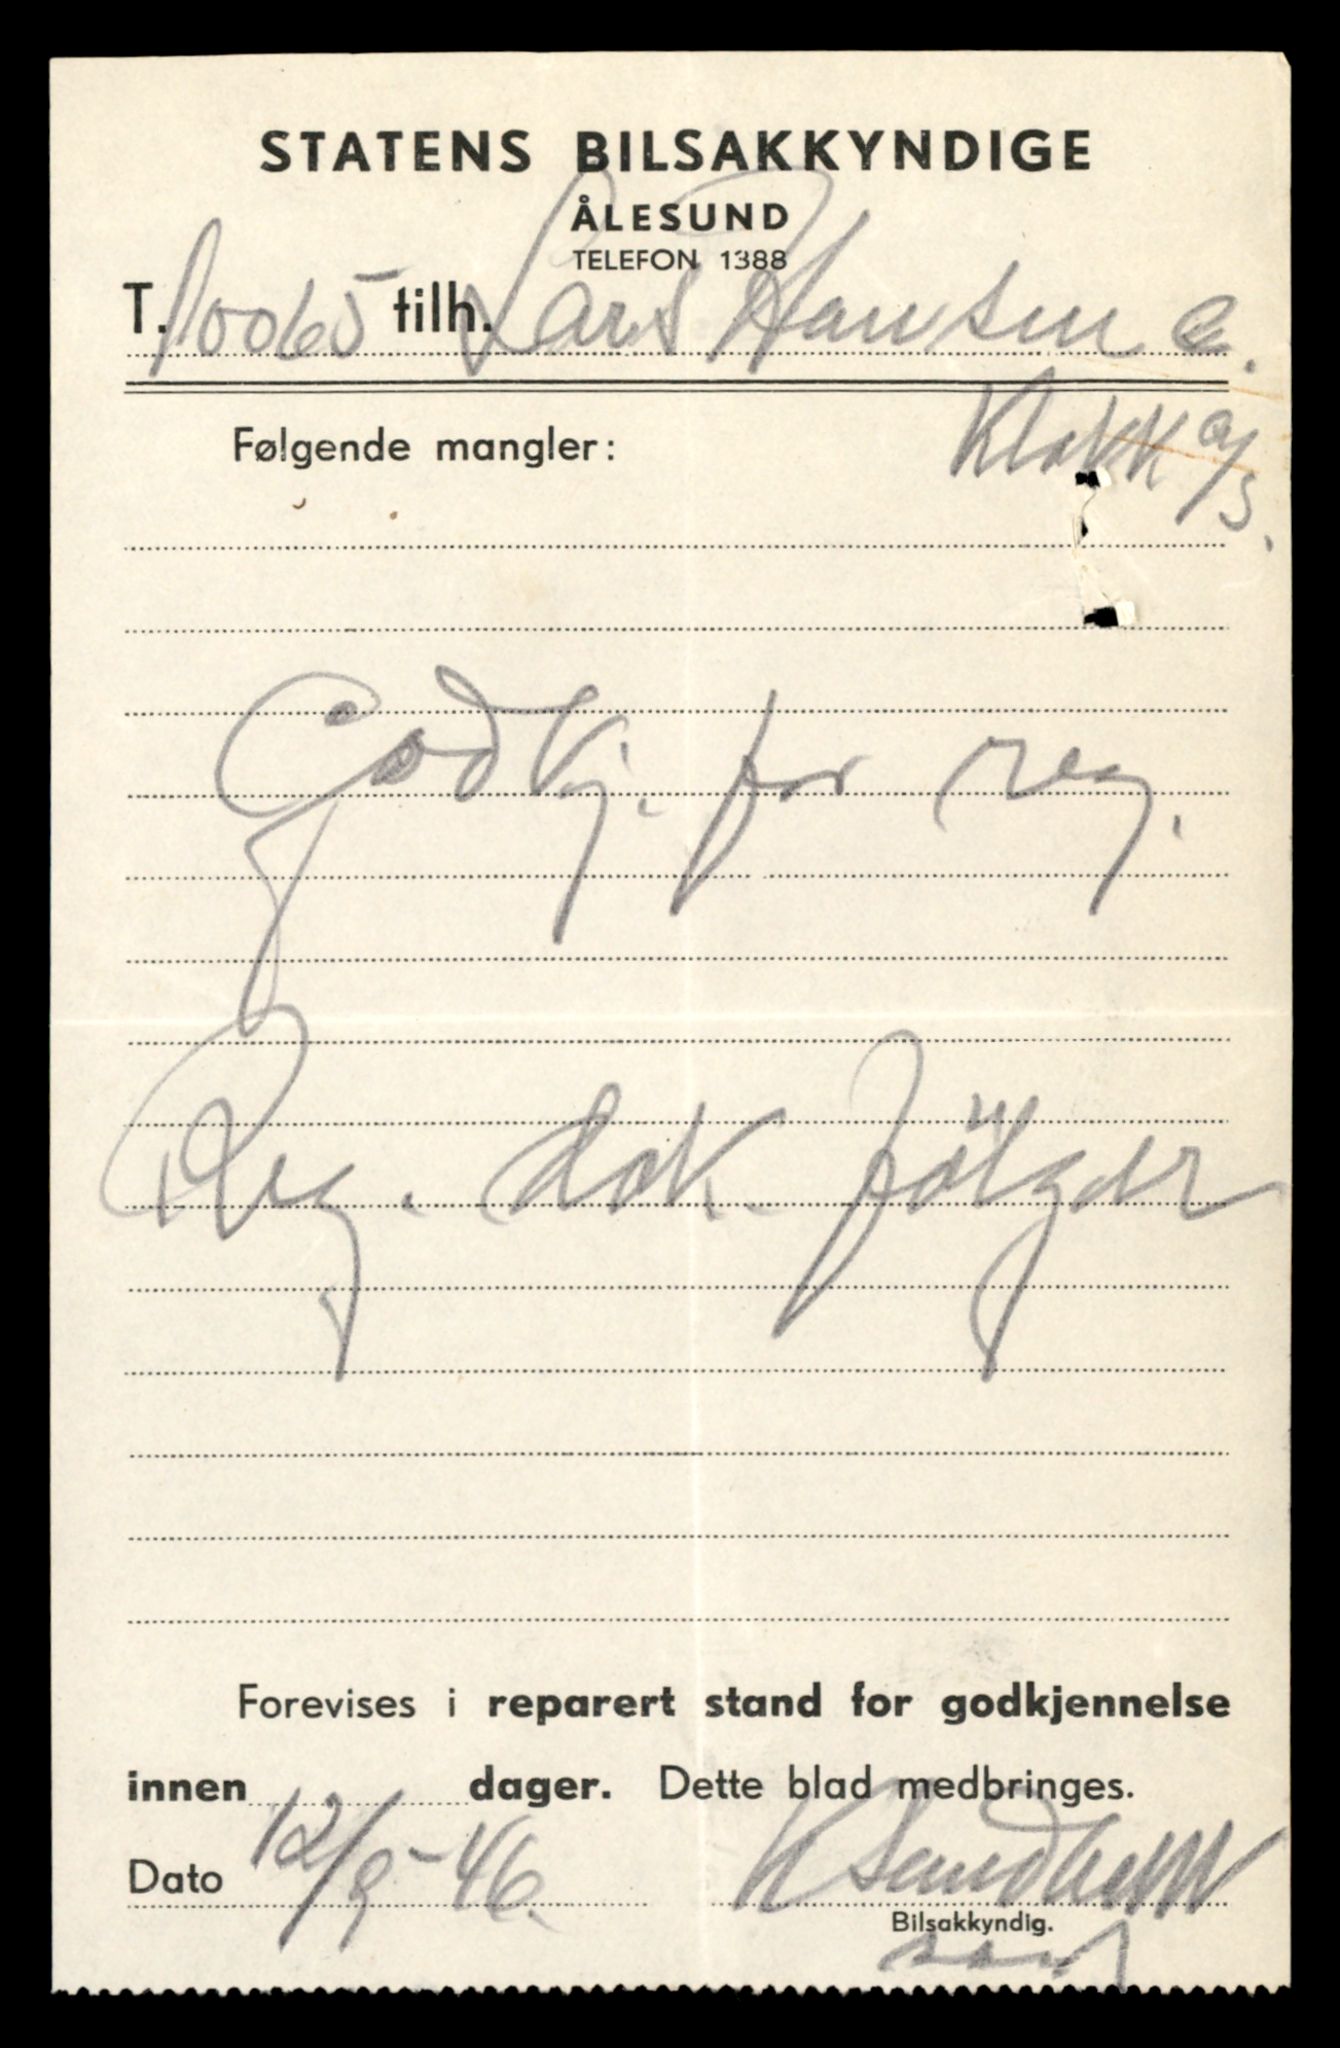 STATENS BILSAKKYNDIGE
ÅLESUND
TELEFON 1388
T. 10065 tilh. Lars Hansen &
Klokk a/s.
Følgende mangler:
Godkj. for reg.
Reg. dok. følger
Forevises i reparert stand for godkjennelse
innen dager. Dette blad medbringes.
Dato 12/9-46.
K Sandhe
Bilsakkyndig.